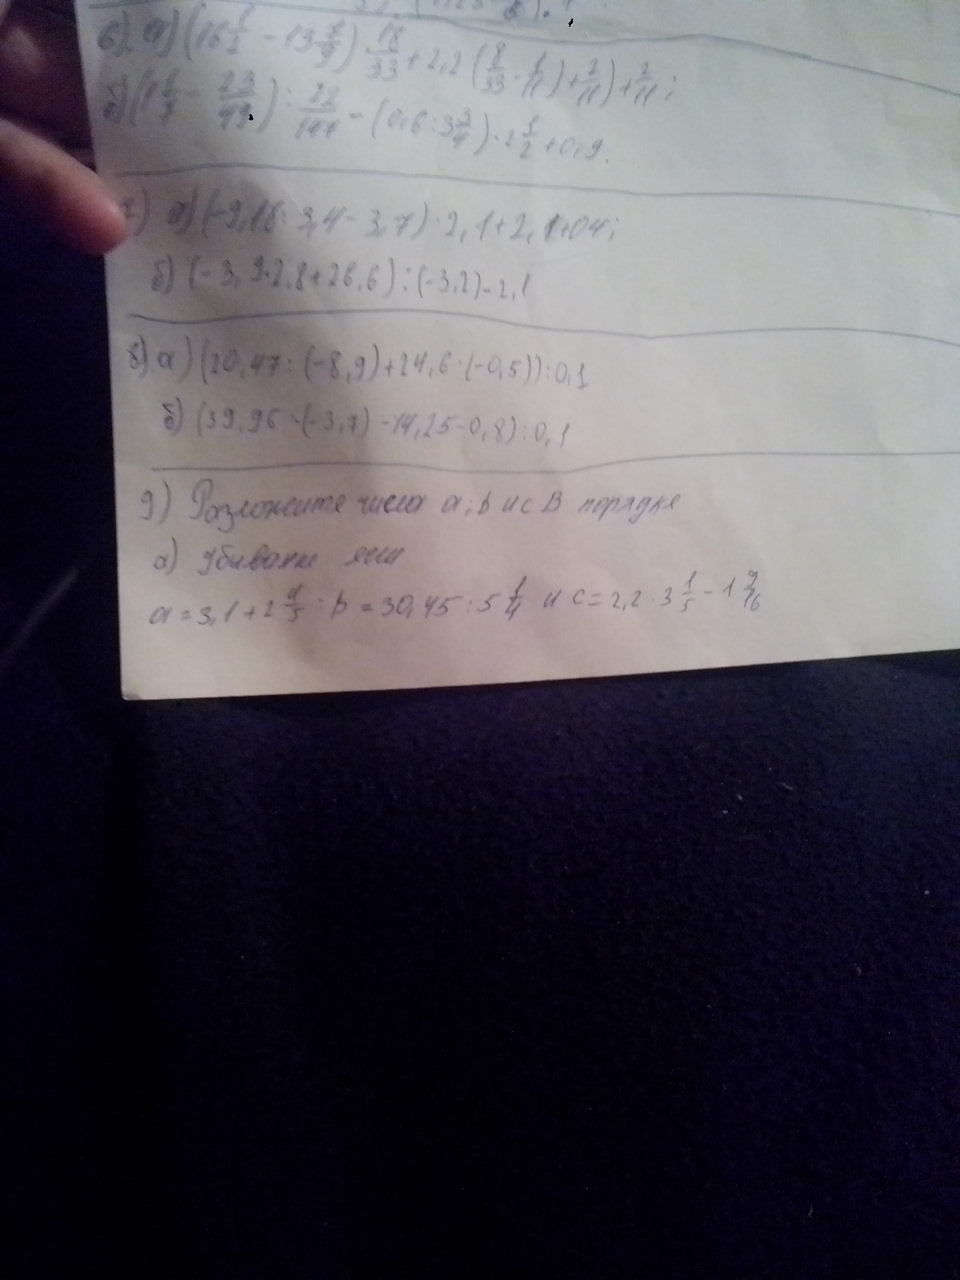 6) а) (16 1/2 - 13 7/9) 18/33 + 2,2 (8/33 - 1/11) + 2/11) + 2/11;
б) - 23/49) : 22/147 - (0,6 : 3 3/4) · 2 1/2 + 0,9.
а) (-9,18 : 3,4 - 3,7) · 2,1 + 2,1 + 04;
б) (-3,9 · 2,8 + 26,6) : (-3,2) - 2,1
8) а) (20,47 : (-8,9) + 24,6 · (-0,5)) : 0,1
б) (39,96 · (-3,7) - 14,25 - 0,8) : 0,1
9) Разложите числа a, b и c В порядке
а)
a = 3,1 + 2 4/5 : b = 30,45 : 5 1/4 и c = 2,2 · 3 1/5 - 1 9/16